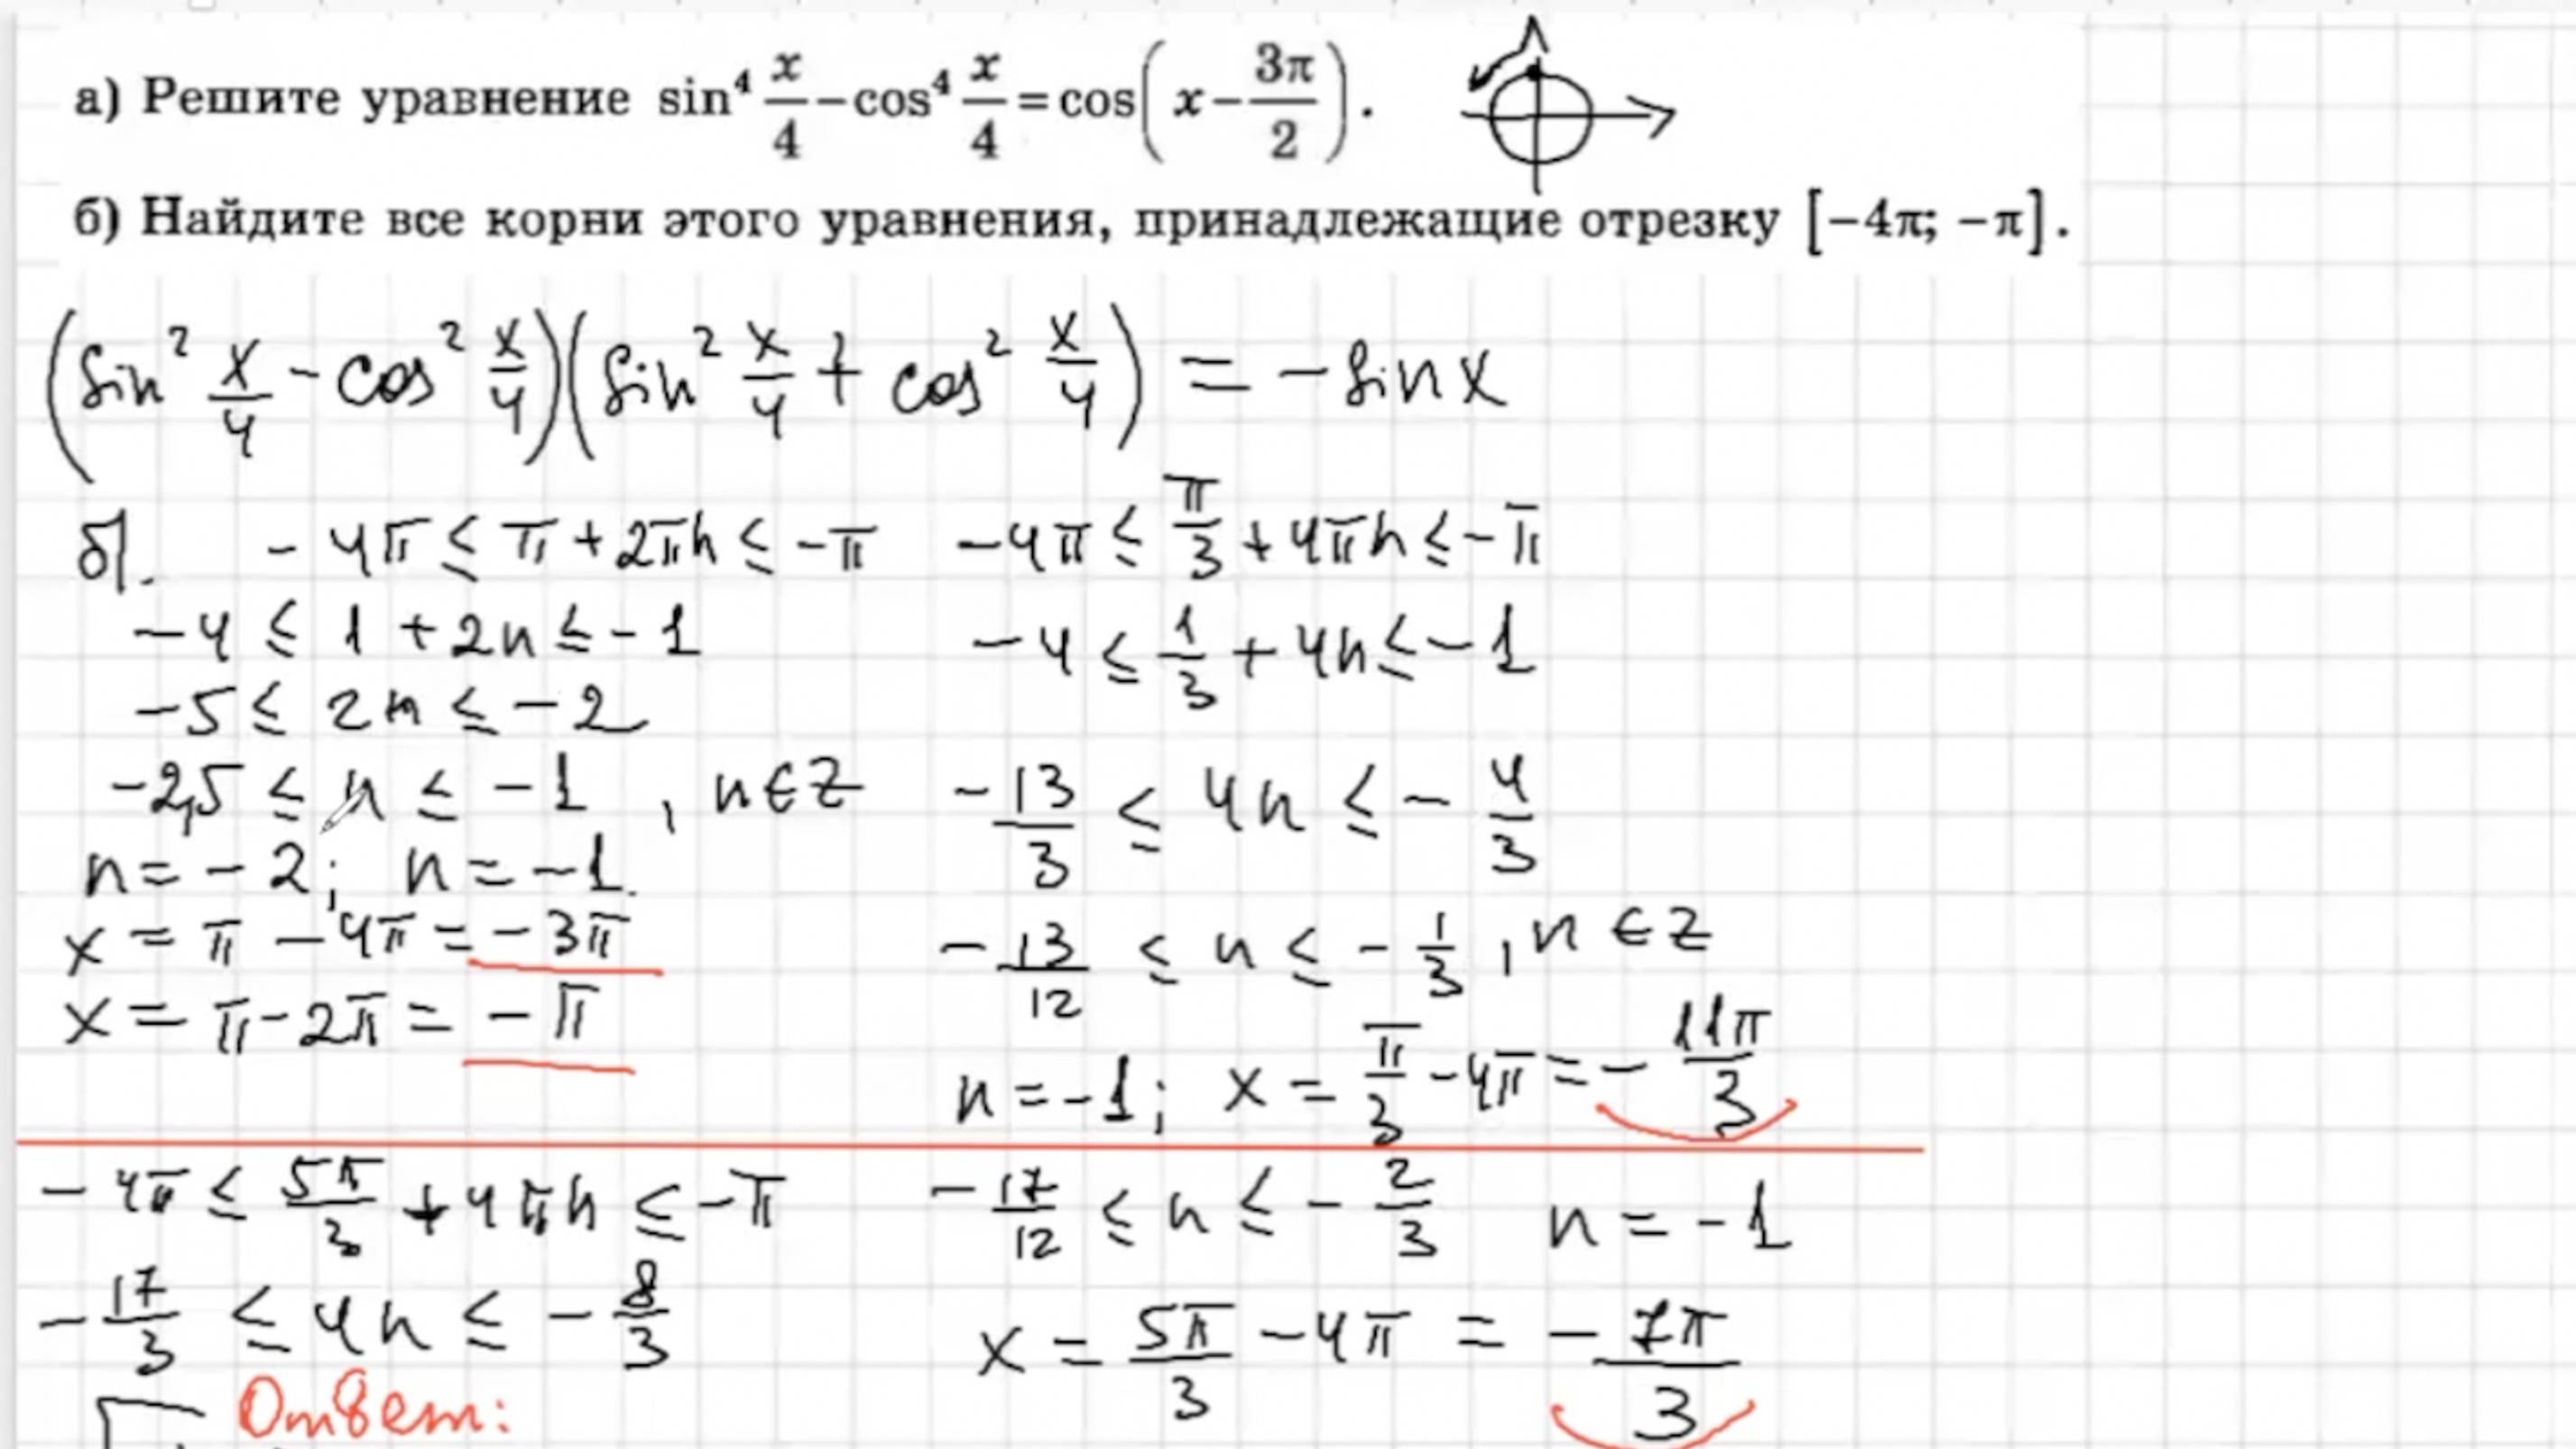 а) Решите уравнение sin⁴ x/4 − cos⁴ x/4 = cos(x − 3π/2).
б) Найдите все корни этого уравнения, принадлежащие отрезку [−4π; −π].
(sin² x/4 − cos² x/4)(sin² x/4 + cos² x/4) = −sin x
б).
−4π ≤ π + 2πn ≤ −π
−4 ≤ 1 + 2n ≤ −1
−5 ≤ 2n ≤ −2
−2,5 ≤ n ≤ −1, n∈Z
n = −2; n = −1.
x = π − 4π = −3π
x = π − 2π = −π
−4π ≤ π/3 + 4πn ≤ −π
−4 ≤ 1/3 + 4n ≤ −1
−13/3 ≤ 4n ≤ −4/3
−13/12 ≤ n ≤ −1/3, n ∈ Z
n = −1; x = π/3 − 4π = −11π/3
−4π ≤ 5π/3 + 4πn ≤ −π
−17/3 ≤ 4n ≤ −8/3
−17/12 ≤ n ≤ −2/3 n = −1
x = 5π/3 − 4π = −7π/3
Ответ: